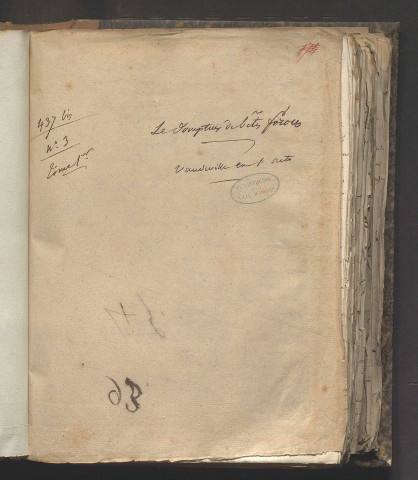 437 bis
N° 3
Tome 1er
Le Dompteur de bêtes féroces
Vaudeville en 1 acte
63